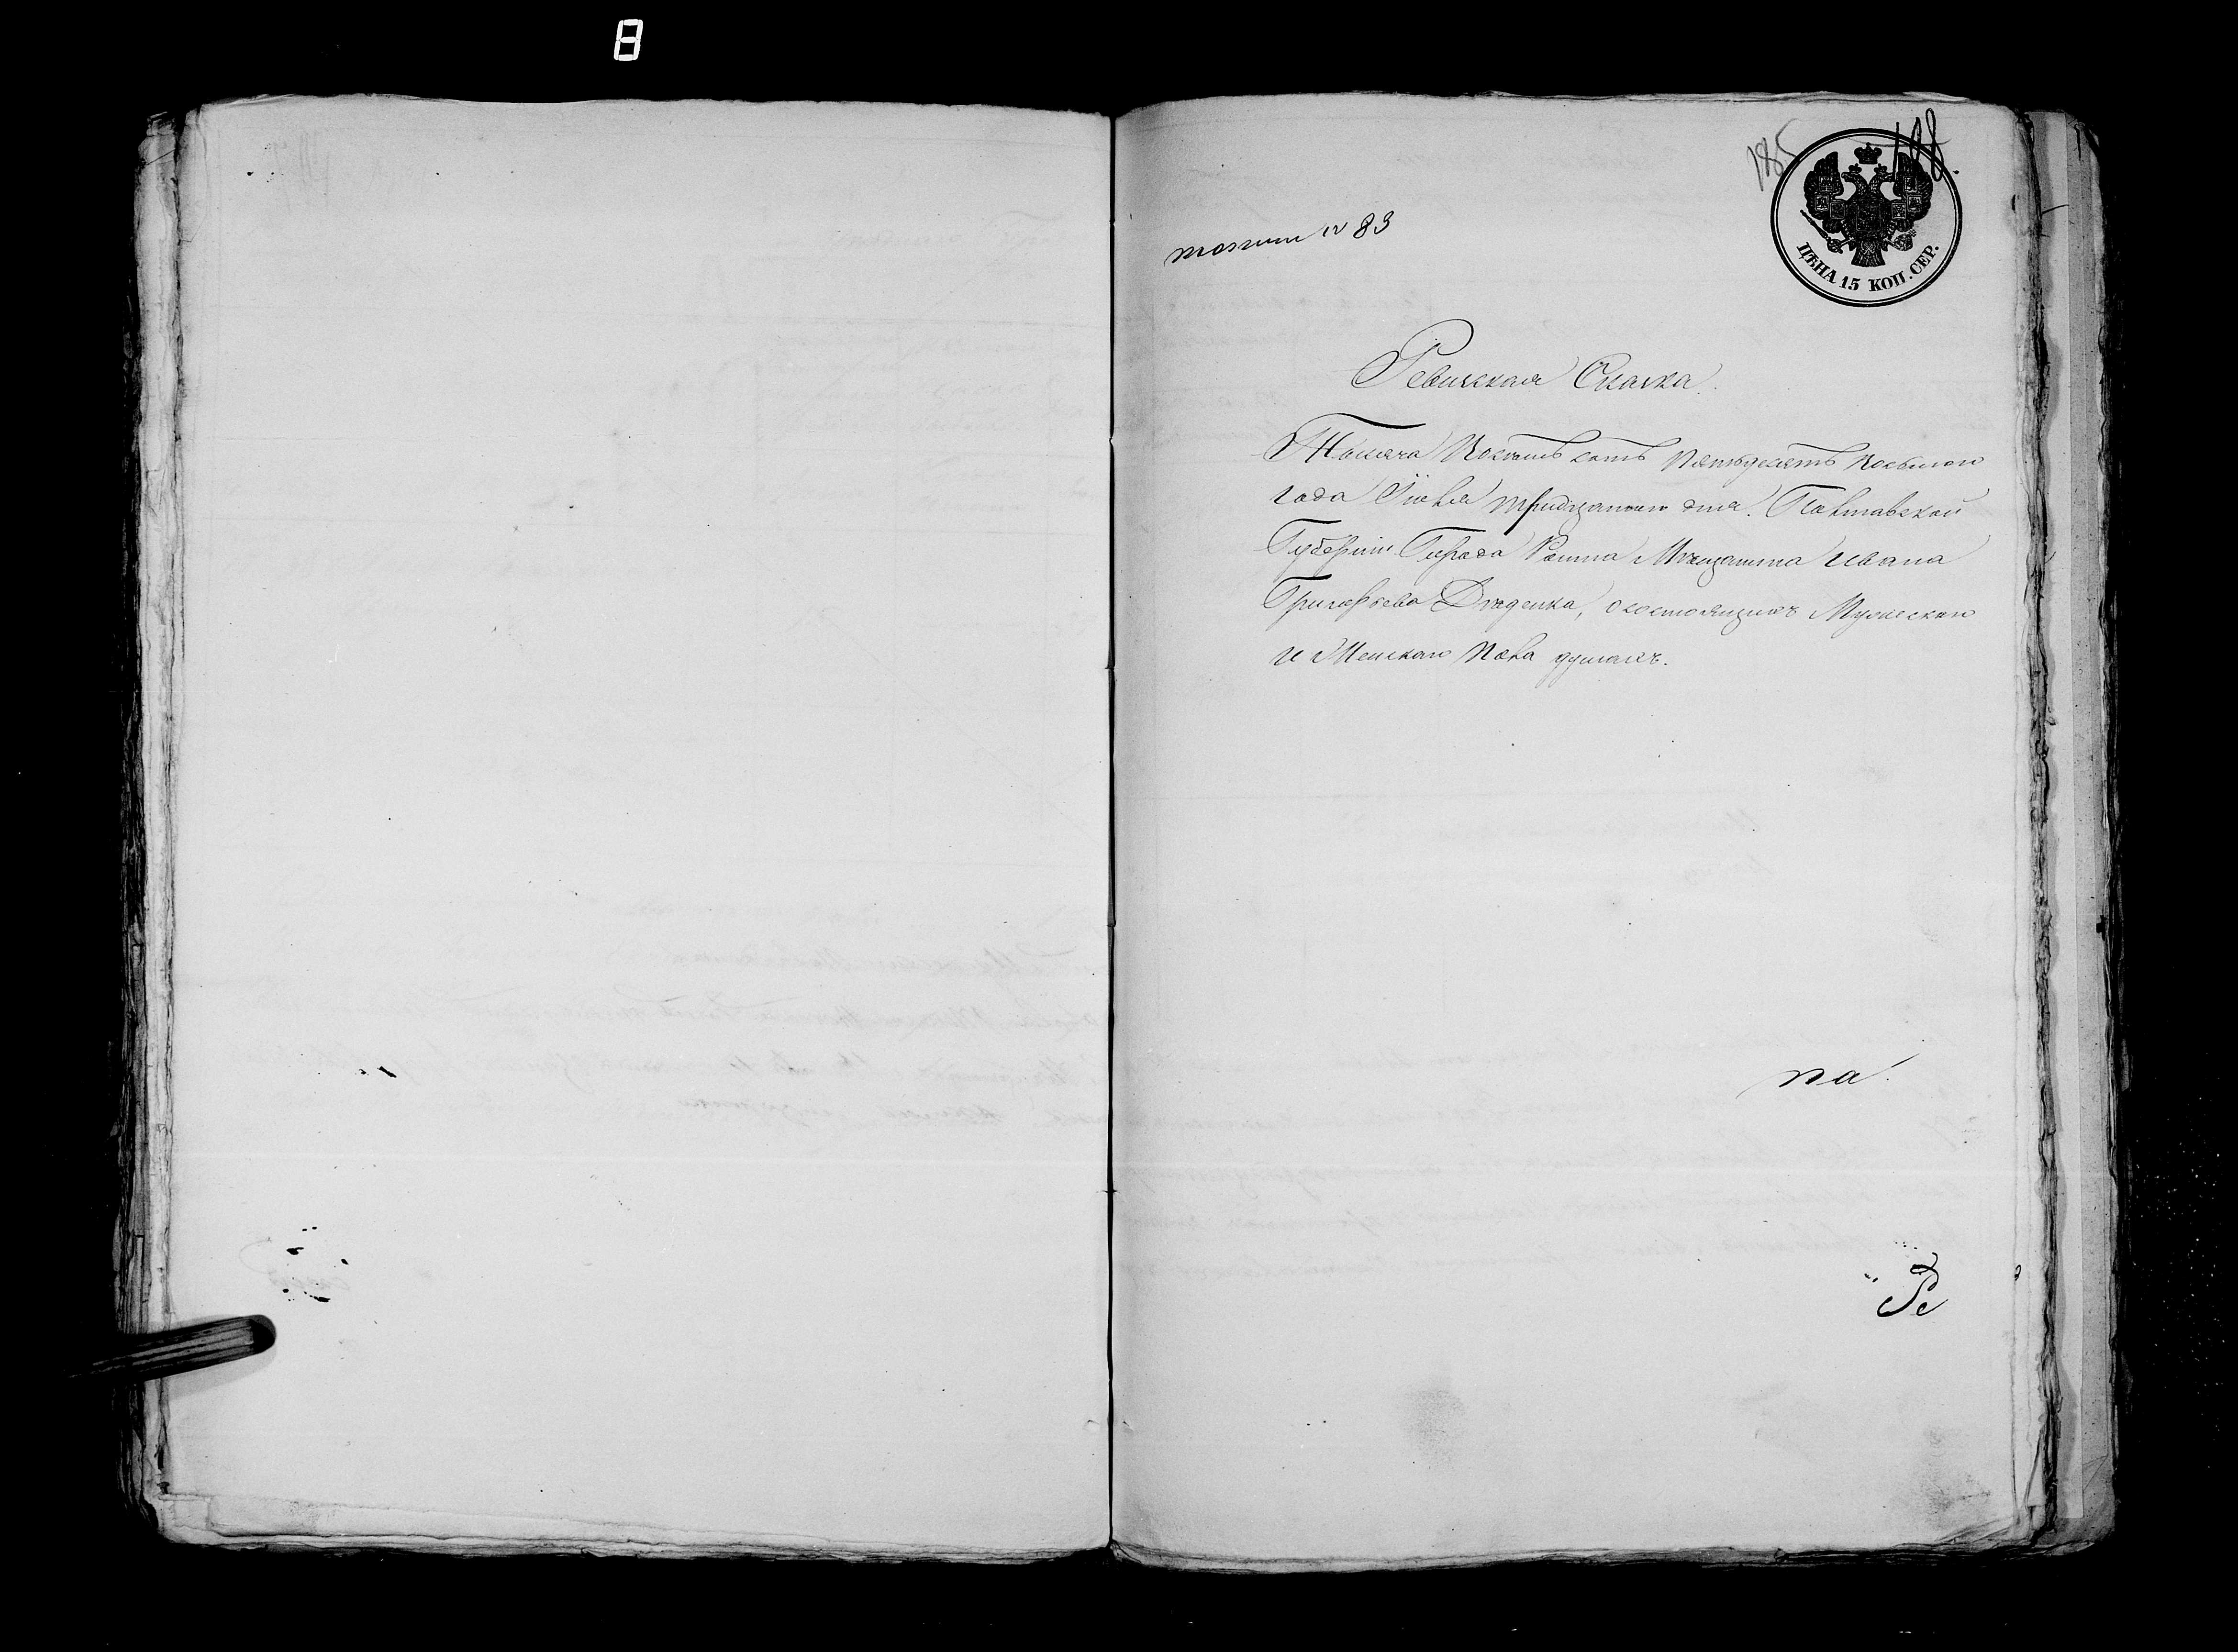 8
185
198.
№ 83
ЦѢНА 15 КОП. СЕР.
Ревизская Сказка.
Тысяча Восемь сотъ Пятьдесятъ Восьмого
года Іюня тридцатого дня. Полтавской
Губерніи Города Ромна Мѣщанина Ивана
Григорьева Дяденка, о состоящихъ Мужеского
и Женского Пола душахъ.
на
Ре